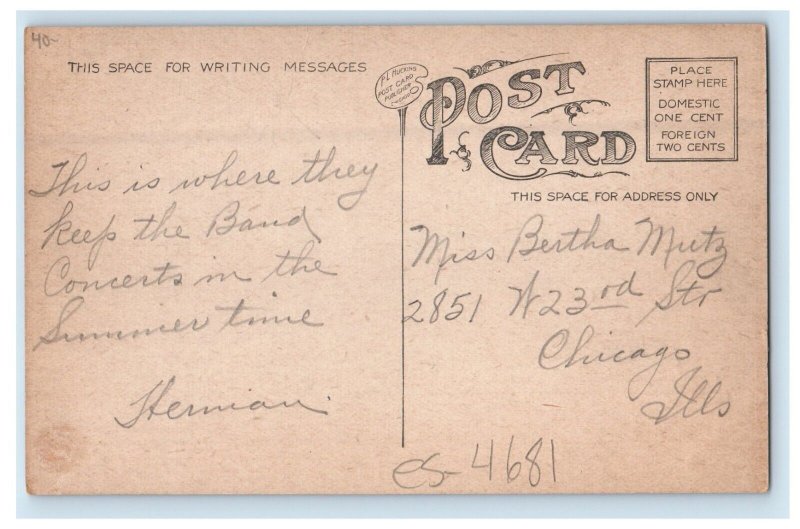 40-
THIS SPACE FOR WRITING MESSAGES
F.L. HUCKINS
POST CARD
PUBLISHER
CHICAGO
POST
CARD
PLACE
STAMP HERE
DOMESTIC
ONE CENT
FOREIGN
TWO CENTS
THIS SPACE FOR ADDRESS ONLY
This is where they
keep the Band
Concerts in the
Summer time
Herman.
Miss Bertha Mutz
2851 W 23rd Str
Chicago
Ills
es-4681